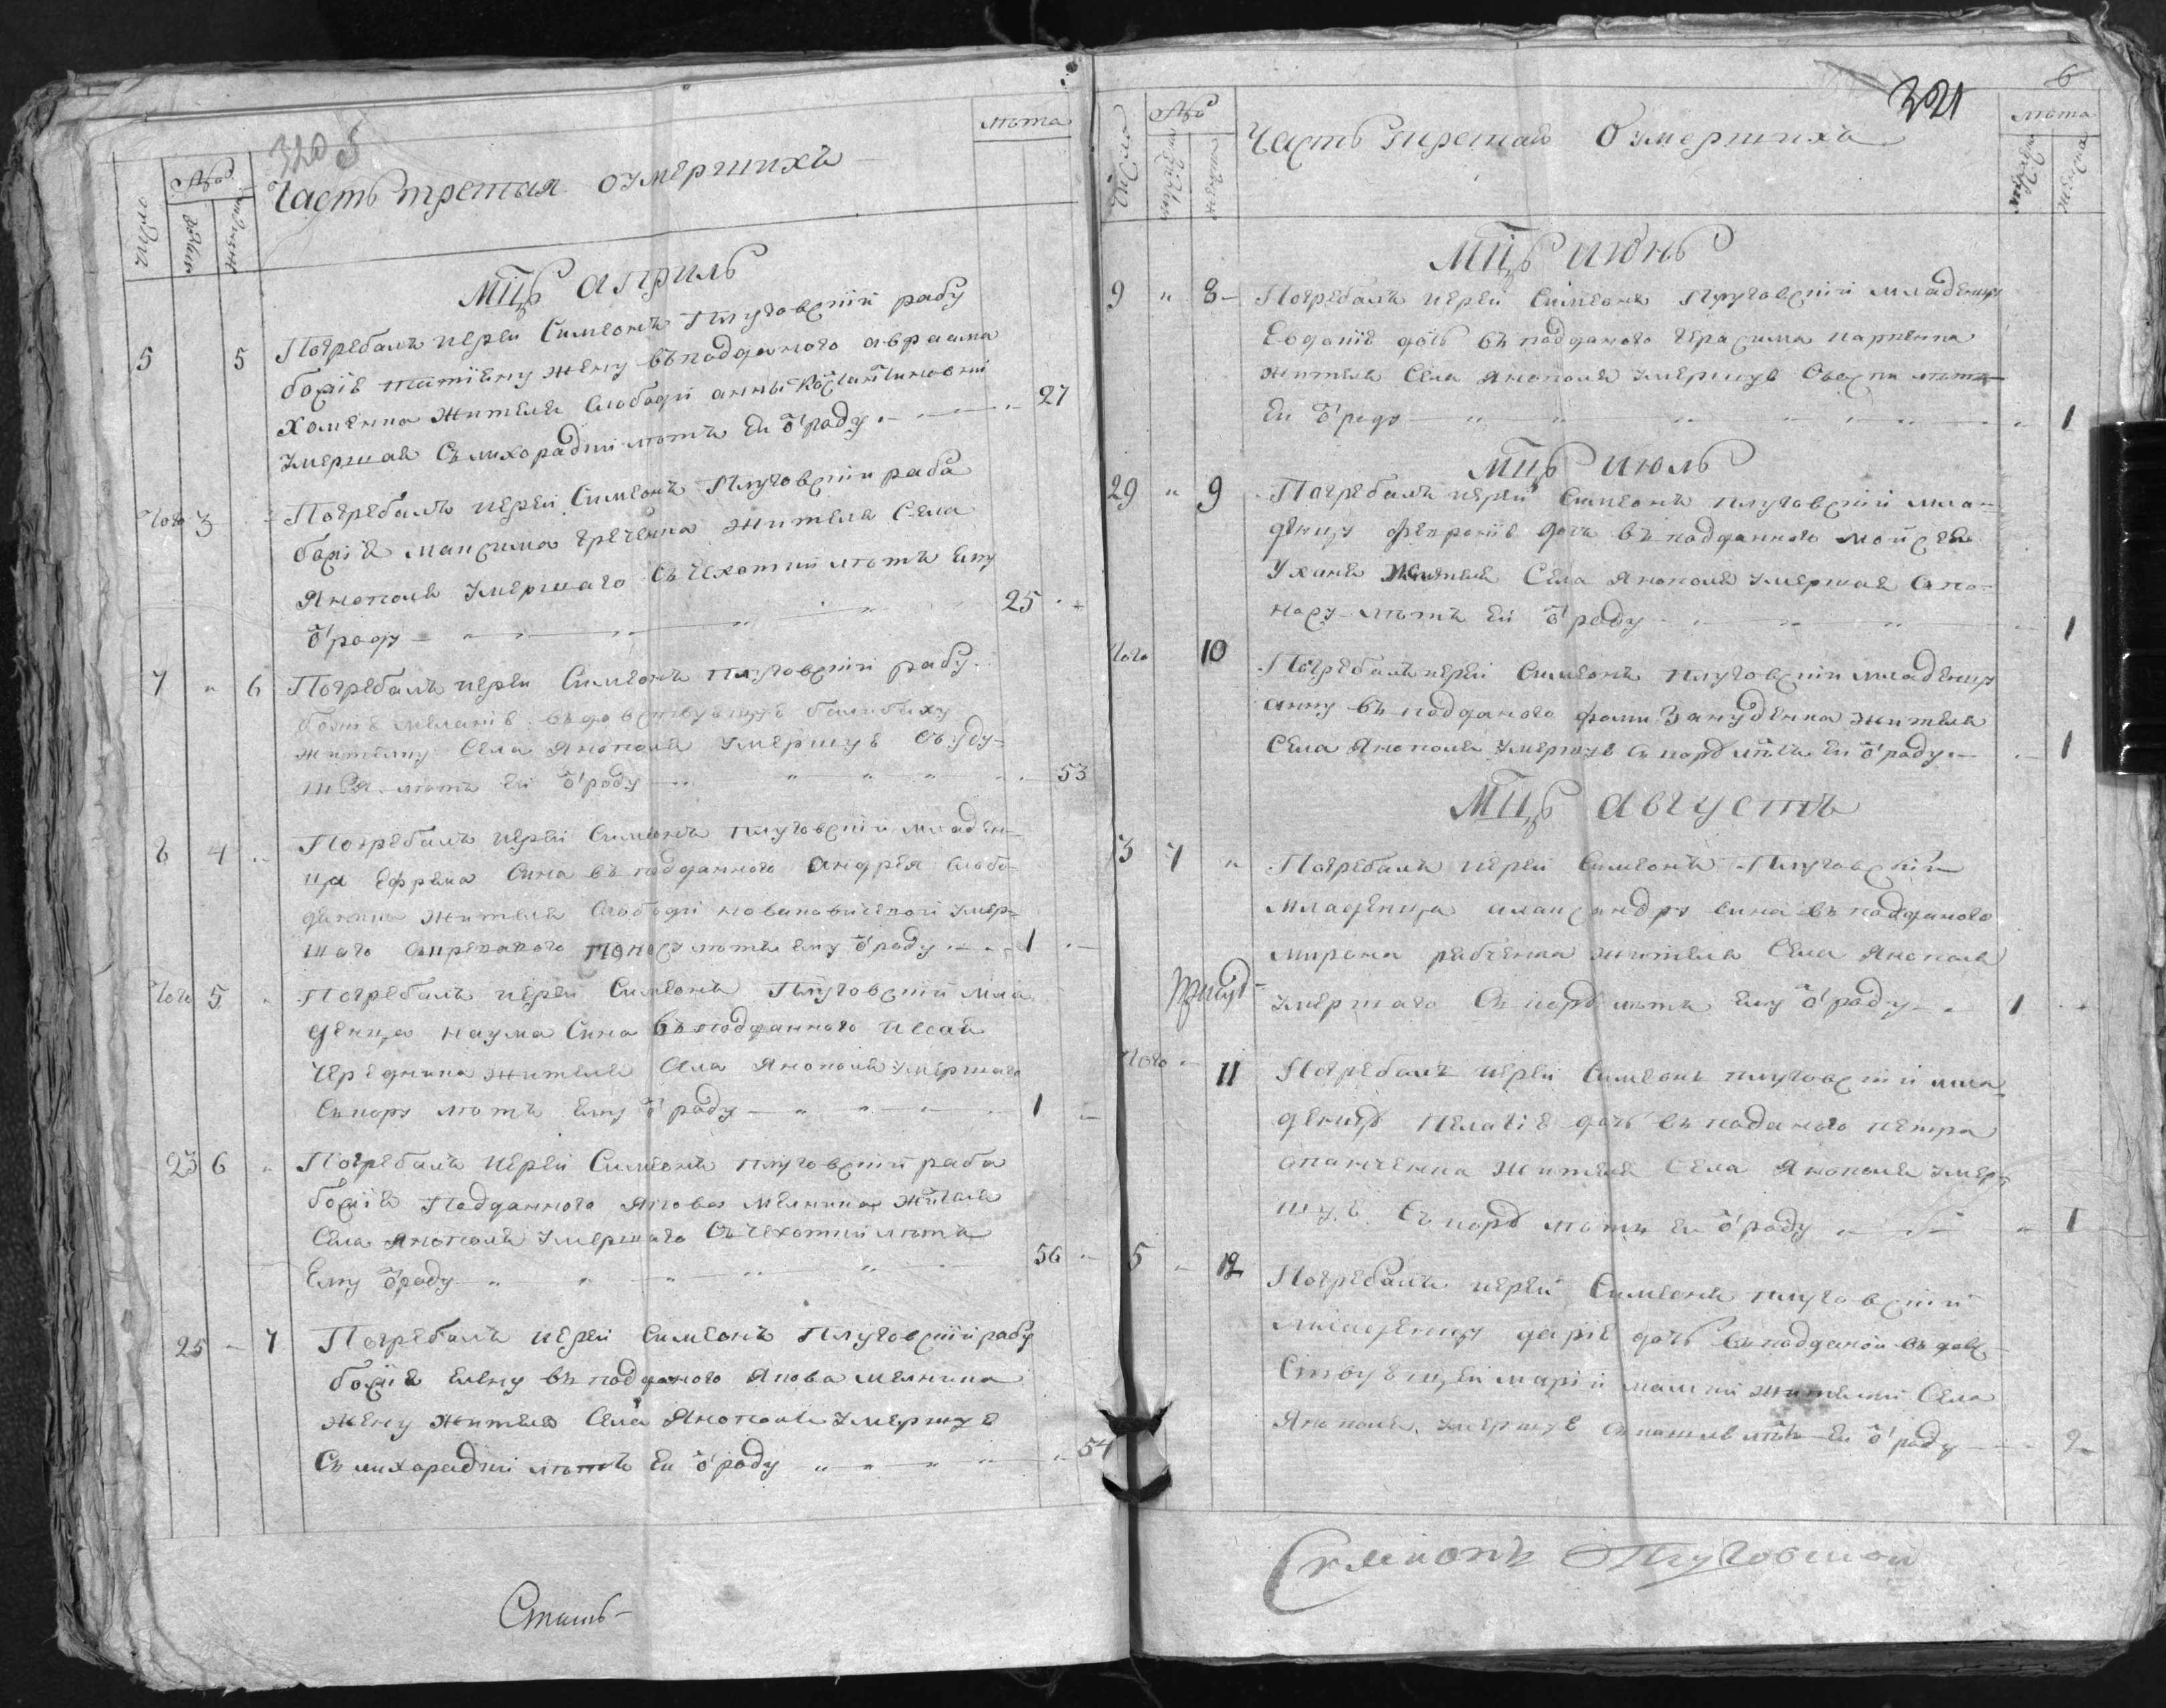 320 5
лѣта
Часть третая оумершихъ
Числа
Мцъ априль
5 5 Погребалъ иерей Симеонъ Плуговскій рабу
божіѣ татіену жену въподданого авраама
хоменка жителя слободи анни Костантиновки
Умершая съ лихорадки лѣтъ Ей ѿ роду 27
Того 3 Погребалъ иерей Симеонъ Плуговскій раба
божія максима греченка жителя Села
Янополя Умершаго съ чехотки лѣтъ Ему
ѿ роду 25
7 6 Погребалъ иерей Симеонъ Плуговскій рабу
божіѣ меланіѣ въдовствующую
жителку Села Янополя Умершуѣ съ уду-
шя лѣтъ Ей ѿ роду 53
8 4 Погребалъ иерей Симеонъ Плуговскій младен-
ца Ефрема Сина въподданного андрея слобо-
дяника жителя Слободи Умер-
шаго поносу лѣтъ ему ѿ роду 1
Того 5 Погребалъ иерей Симеонъ Плуговскій мла
денца наума Сина въподданного исаия
Чередника жителя Села Янополя Умершаго
съкору лѣтъ Ему ѿ роду 1
23 6 Погребалъ иерей Симеонъ Плуговскій раба
божія Подданного Якова мелника жителя
Села Янополя Умершаго Съчехотки лѣта
Ему ѿ роду 56
25 7 Погребалъ иерей Симеонъ Плуговскій рабу
божія елену въподданого Якова мелника
жену жителя Села Янополя Умершуѣ
Съ лихорадки лѣтъ Ей ѿ роду 54
321
6
Числа
лѣта
Часть третая Оумершихъ
Мцъ июнь
9 8 Погребалъ иерей Симеонъ Плуговскій младенцу
Евдокіѣ дочь въподданого герасима карпенка
жителя Села Янополя Умершуѣ Ѡвоспи лѣта
Ей ѿ роду 1
Мцъ июль
29 9 Погребалъ иерей Симеонъ Плуговскій мла-
денцу февроніѣ дочь въподданного мойсея
Уханя жителя Села Янополя Умершая съпо-
носу лѣтъ Ей ѿ роду 1
Того 10 Погребалъ иерей Симеонъ Плуговскій младенцу
анну въподданого фоми жителя
Села Янополя Умершуѣ съ корѣ лѣтъ Ей ѿ роду 1
Мцъ августъ
3 7 Погребалъ иерей Симеонъ Плуговскій
младенца алаксандру сина въподданого
мирона рябченка жителя Села Янополя
Умершаго Съ корѣ лѣтъ Ему ѿ роду 1
Того 11 Погребалъ иерей Симеонъ Плуговскій мла
денцу Пелагіѣ дочь въподаного петра
опанченка жителя Села Янополя Умер
шуѣ Съ корѣ лѣтъ Ей ѿ роду 1
5 12 Погребалъ иерей Симеонъ Плуговскій
младенцу даріѣ дочь въподданой въдов
ствуѣщей маріи жителки Села
Янополя Умершуѣ съкашлѣ лѣтъ Ей ѿ роду 2
Симионъ Плуговскои